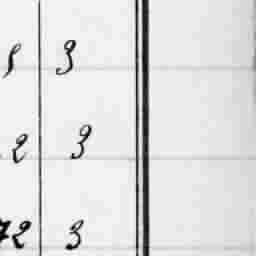 3
2 3
72 3